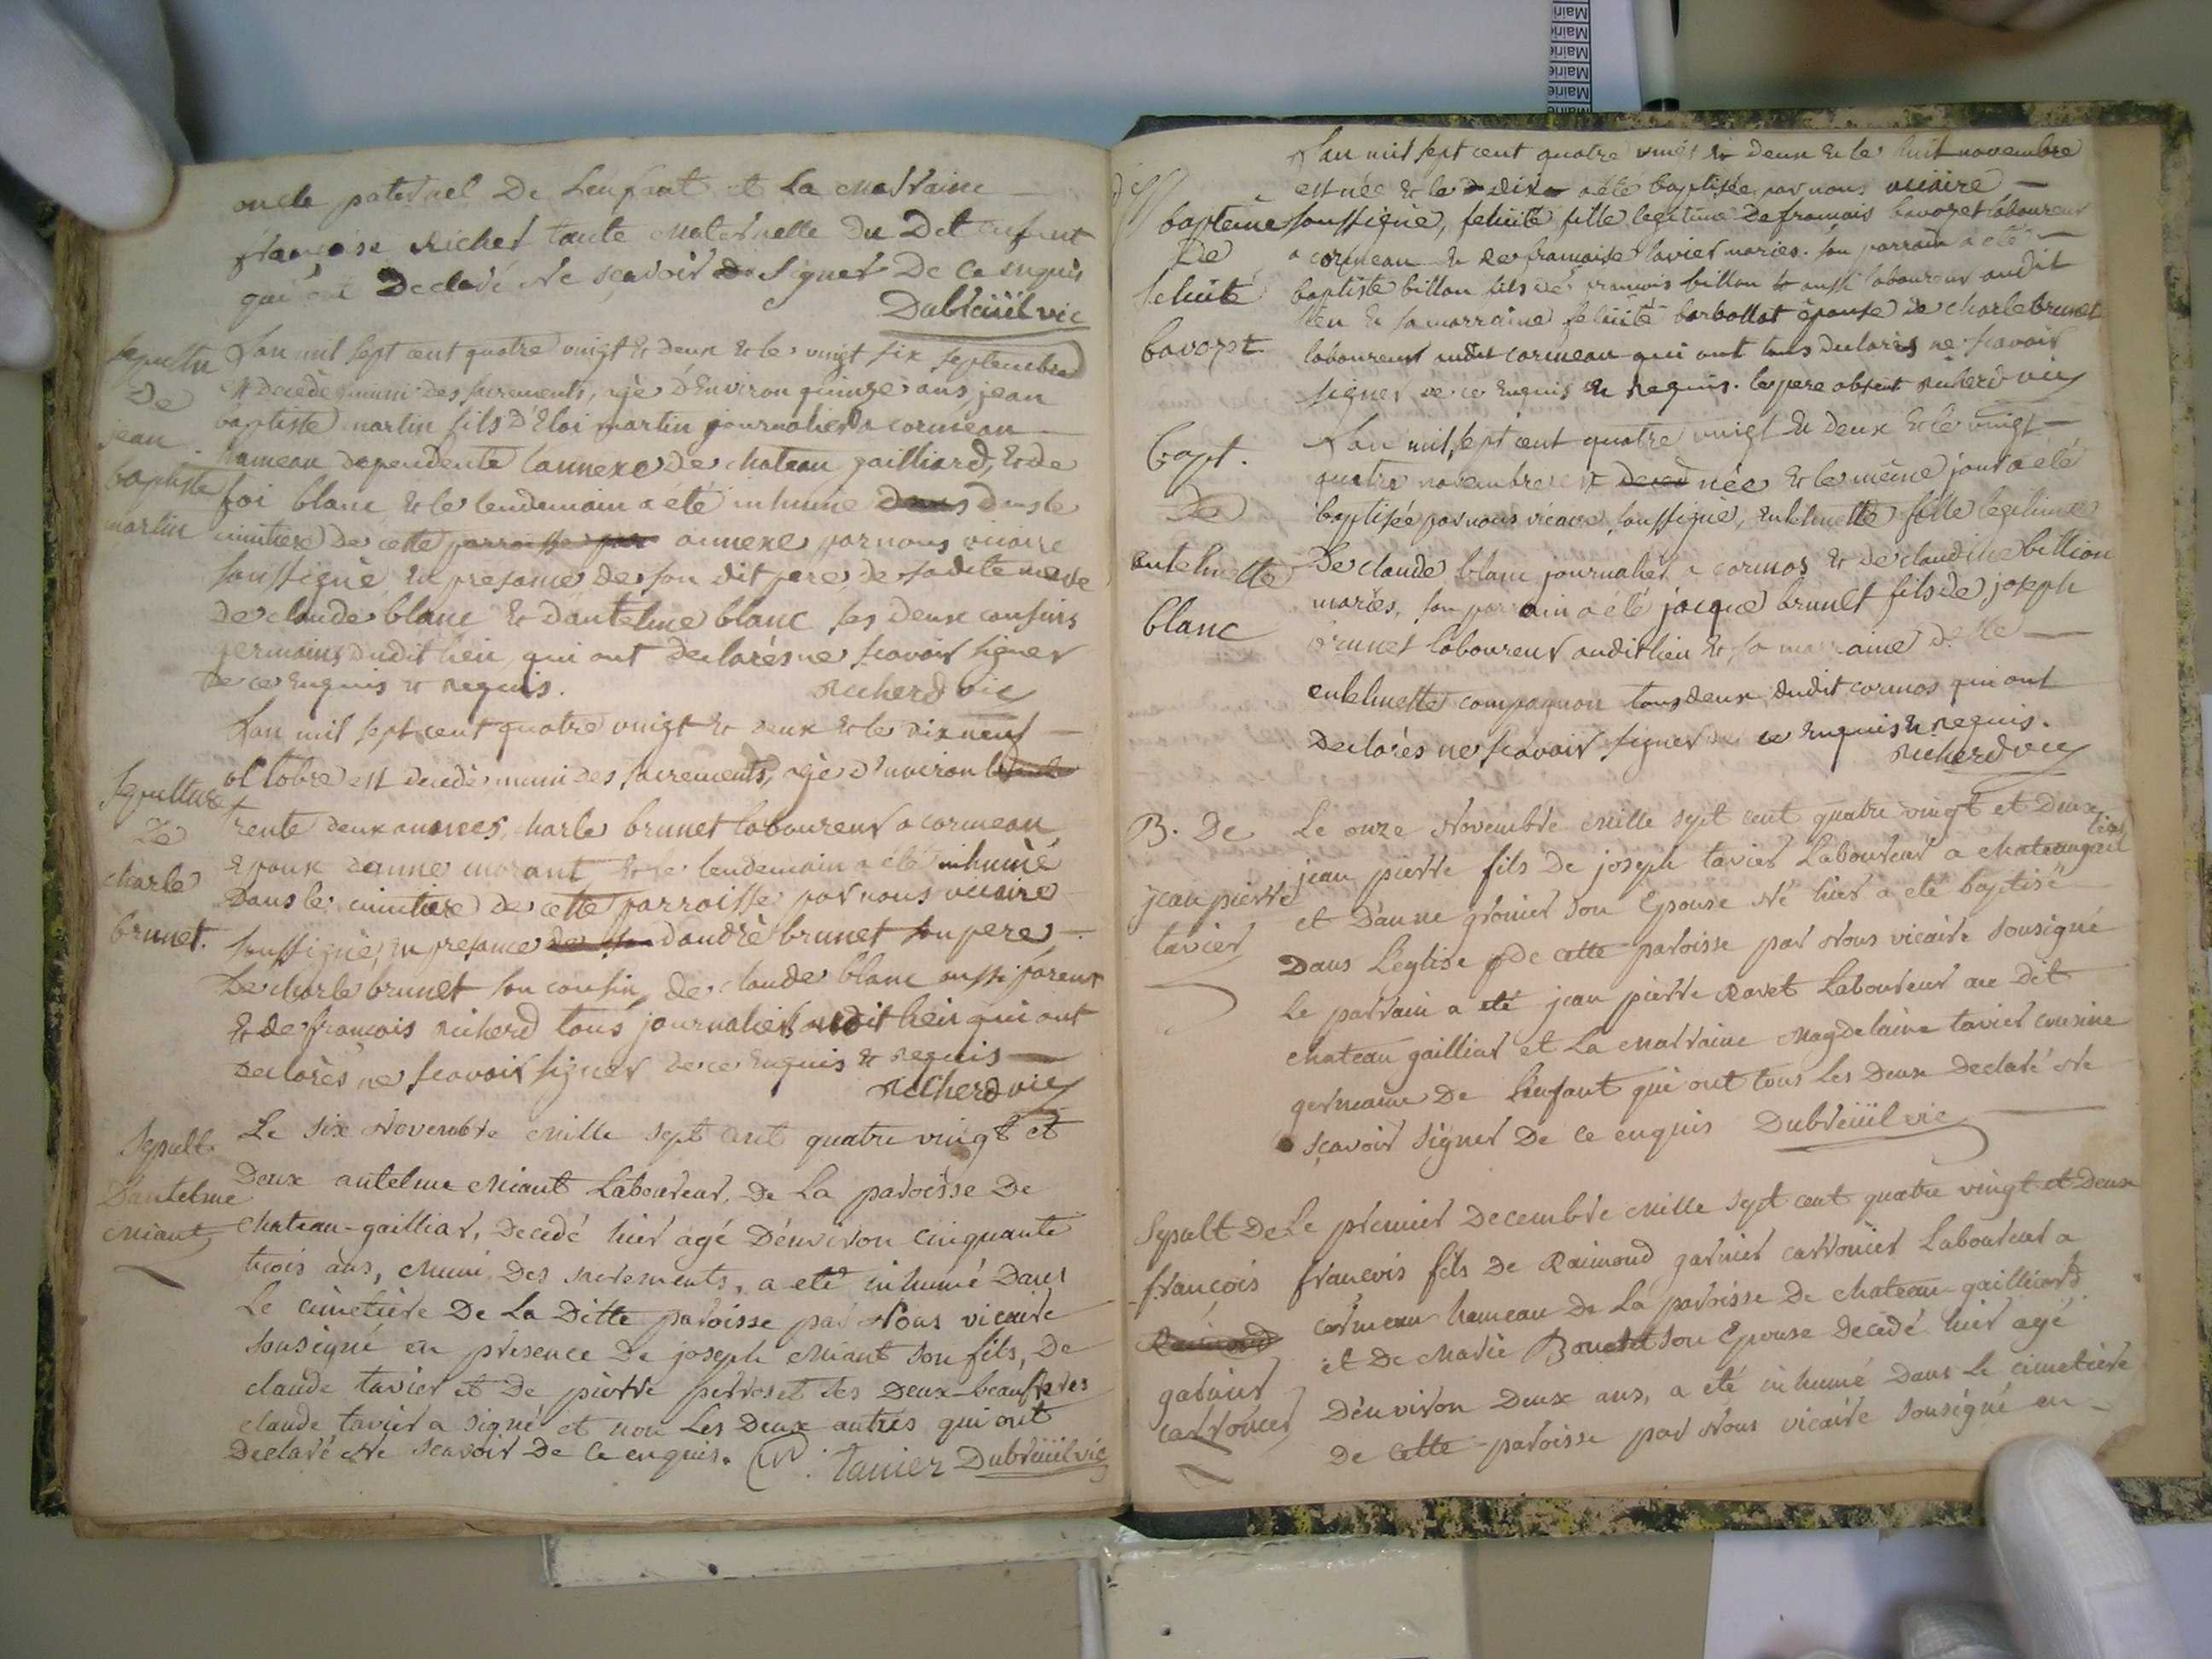 oncle paternel De Lenfant et La Marraine
françoise Richer tante Maternelle Du Dit enfant
qui ont Declaré Ne sçavoir Signer De Ce enquis
Dubreüil vic
sepultu
De
jean
baptiste
martin
Lan mil sept cent quatre vingt & deux & le vingt six septembre
est decede muni des sacrements, agè d'Environ quinze ans, jean
baptiste martin fils d'Eloi martin journalier a cormeau
hameau dependente lannexe de chateau gailliard, & de
foi blanc & le lendemain a été inhumé dans dans le
cimitiere de cette parroisse par annexe par nous vicaire
soussigné, en presance de son dit pere, de sadite mere
de claude blanc & dantelme blanc ses deux cousins
germains dudit lieu, qui ont declarés ne scavoir signer
de ce Enquis & requis. Richerd vic
Sepulture
De
charle
brunet.
Lan mil sept cent quatre vingt & deux & le dix neuf
octobre est decedé muni des sacrements, agè d'Environ
trente deux annes, charle brunet laboureur a cormeau
Epoux danne morant & le lendemain a été inhumé
Dans le cimitiere de cette parroisse par nous vicaire
soussigné, en presance de son dandrè brunet son pere,
De charle brunet son cousin, de claude blanc aussi parent
& de francois richerd tous journaliers audit lieu qui ont
declarès ne scavoir signer de ce Enquis & requis
Richerd vic
Sepult.
Dantelme
Miant
Le Six Novembre Mille Sept Cent quatre vingt et
Deux antelme Miant Laboureur, De La paroisse De
Chateau-gailliar, Decedé hier agé D'environ Cinquante
trois ans, Muni Des sacrements, a eté inhumé Dans
Le Cimetiere De La Ditte paroisse par Nous vicaire
Sousigné en presence De joseph Miant Son fils, De
claude tavier et De pierre perroset ses Deux beaufreres
claude tavier a Signé et non Les Deux autres qui ont
Declaré Ne Scavoir De Ce enquis. tavier Dubreüil vic
baptème
De
felicité
bavozet
Lan mil sept cent quatre vingt & deux & le huit novembre
est née & le dix a été baptisée par nous vicaire
soussigné, felicité fille legitime de francois bavozet laboureur
a cormeau & de francoise tavier mariès. son parrain a été
baptiste billon fils de francois billon & aussi laboureur audit
lieu & sa marraine felicité barbollat épouse de charle brunet
laboureur audit cormeau qui ont tous declarès ne scavoir
signer de ce Enquis & Requis. le pere absent Richerd vic
Bapt.
De
antelmette
blanc
Lan mil sept cent quatre vingt & deux & le vingt
quatre novembre est deced née & le même jour a été
baptisée par nous vicaire soussigné, entelmette fille legitime
De claude blanc journalier a cormos & de claudine billion
mariès, son parrain a été jacque brunet fils de joseph
brunet laboureur audit lieu & sa marraine
entelmette compagnon tous deux dudit cormos qui ont
declarès ne scavoir signer de ce Enquis & requis.
Richerd vic
B. De
jean pierre
tavier
Le onze Novembre Mille Sept Cent quatre vingt et Deux
jean pierre fils De joseph tavier Laboureur a Chateaugail
liar
et D'anne grönier Son Epouse Né hier a eté baptisé
Dans L'eglise de cette paroisse par Nous vicaire Sousigné
Le parrain a eté jean pierre Ravet Laboureur au Dit
Chateau gailliar et La Marraine Magdelaine tavier Cousine
germaine De L'enfant qui ont tous Les Deux Declaré Ne
sçavoir Signer De Ce enquis Dubreüil vic
Sepult De
françois
Raimond
garnier
carronier
Le premier Decembre Mille Sept Cent quatre vingt et Deux
françois fils De Raimond garnier carronier Laboureur a
cormeau hameau De La paroisse De Chateau-gailliard
et De Marie Son Epouse Decedé hier agé
D'environ Deux ans, a eté inhumé Dans Le Cimetiere
De Cette paroisse par Nous vicaire Sousigné en
Mairie
Mairie
Mairie
Mairie
Mairie